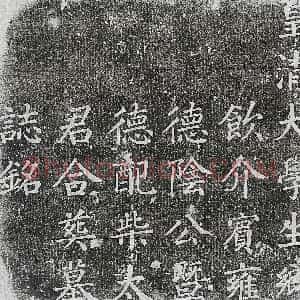 皇清大學生鄉
飲介賓雍
德陰公暨
德配柴太
君合葬墓
誌銘